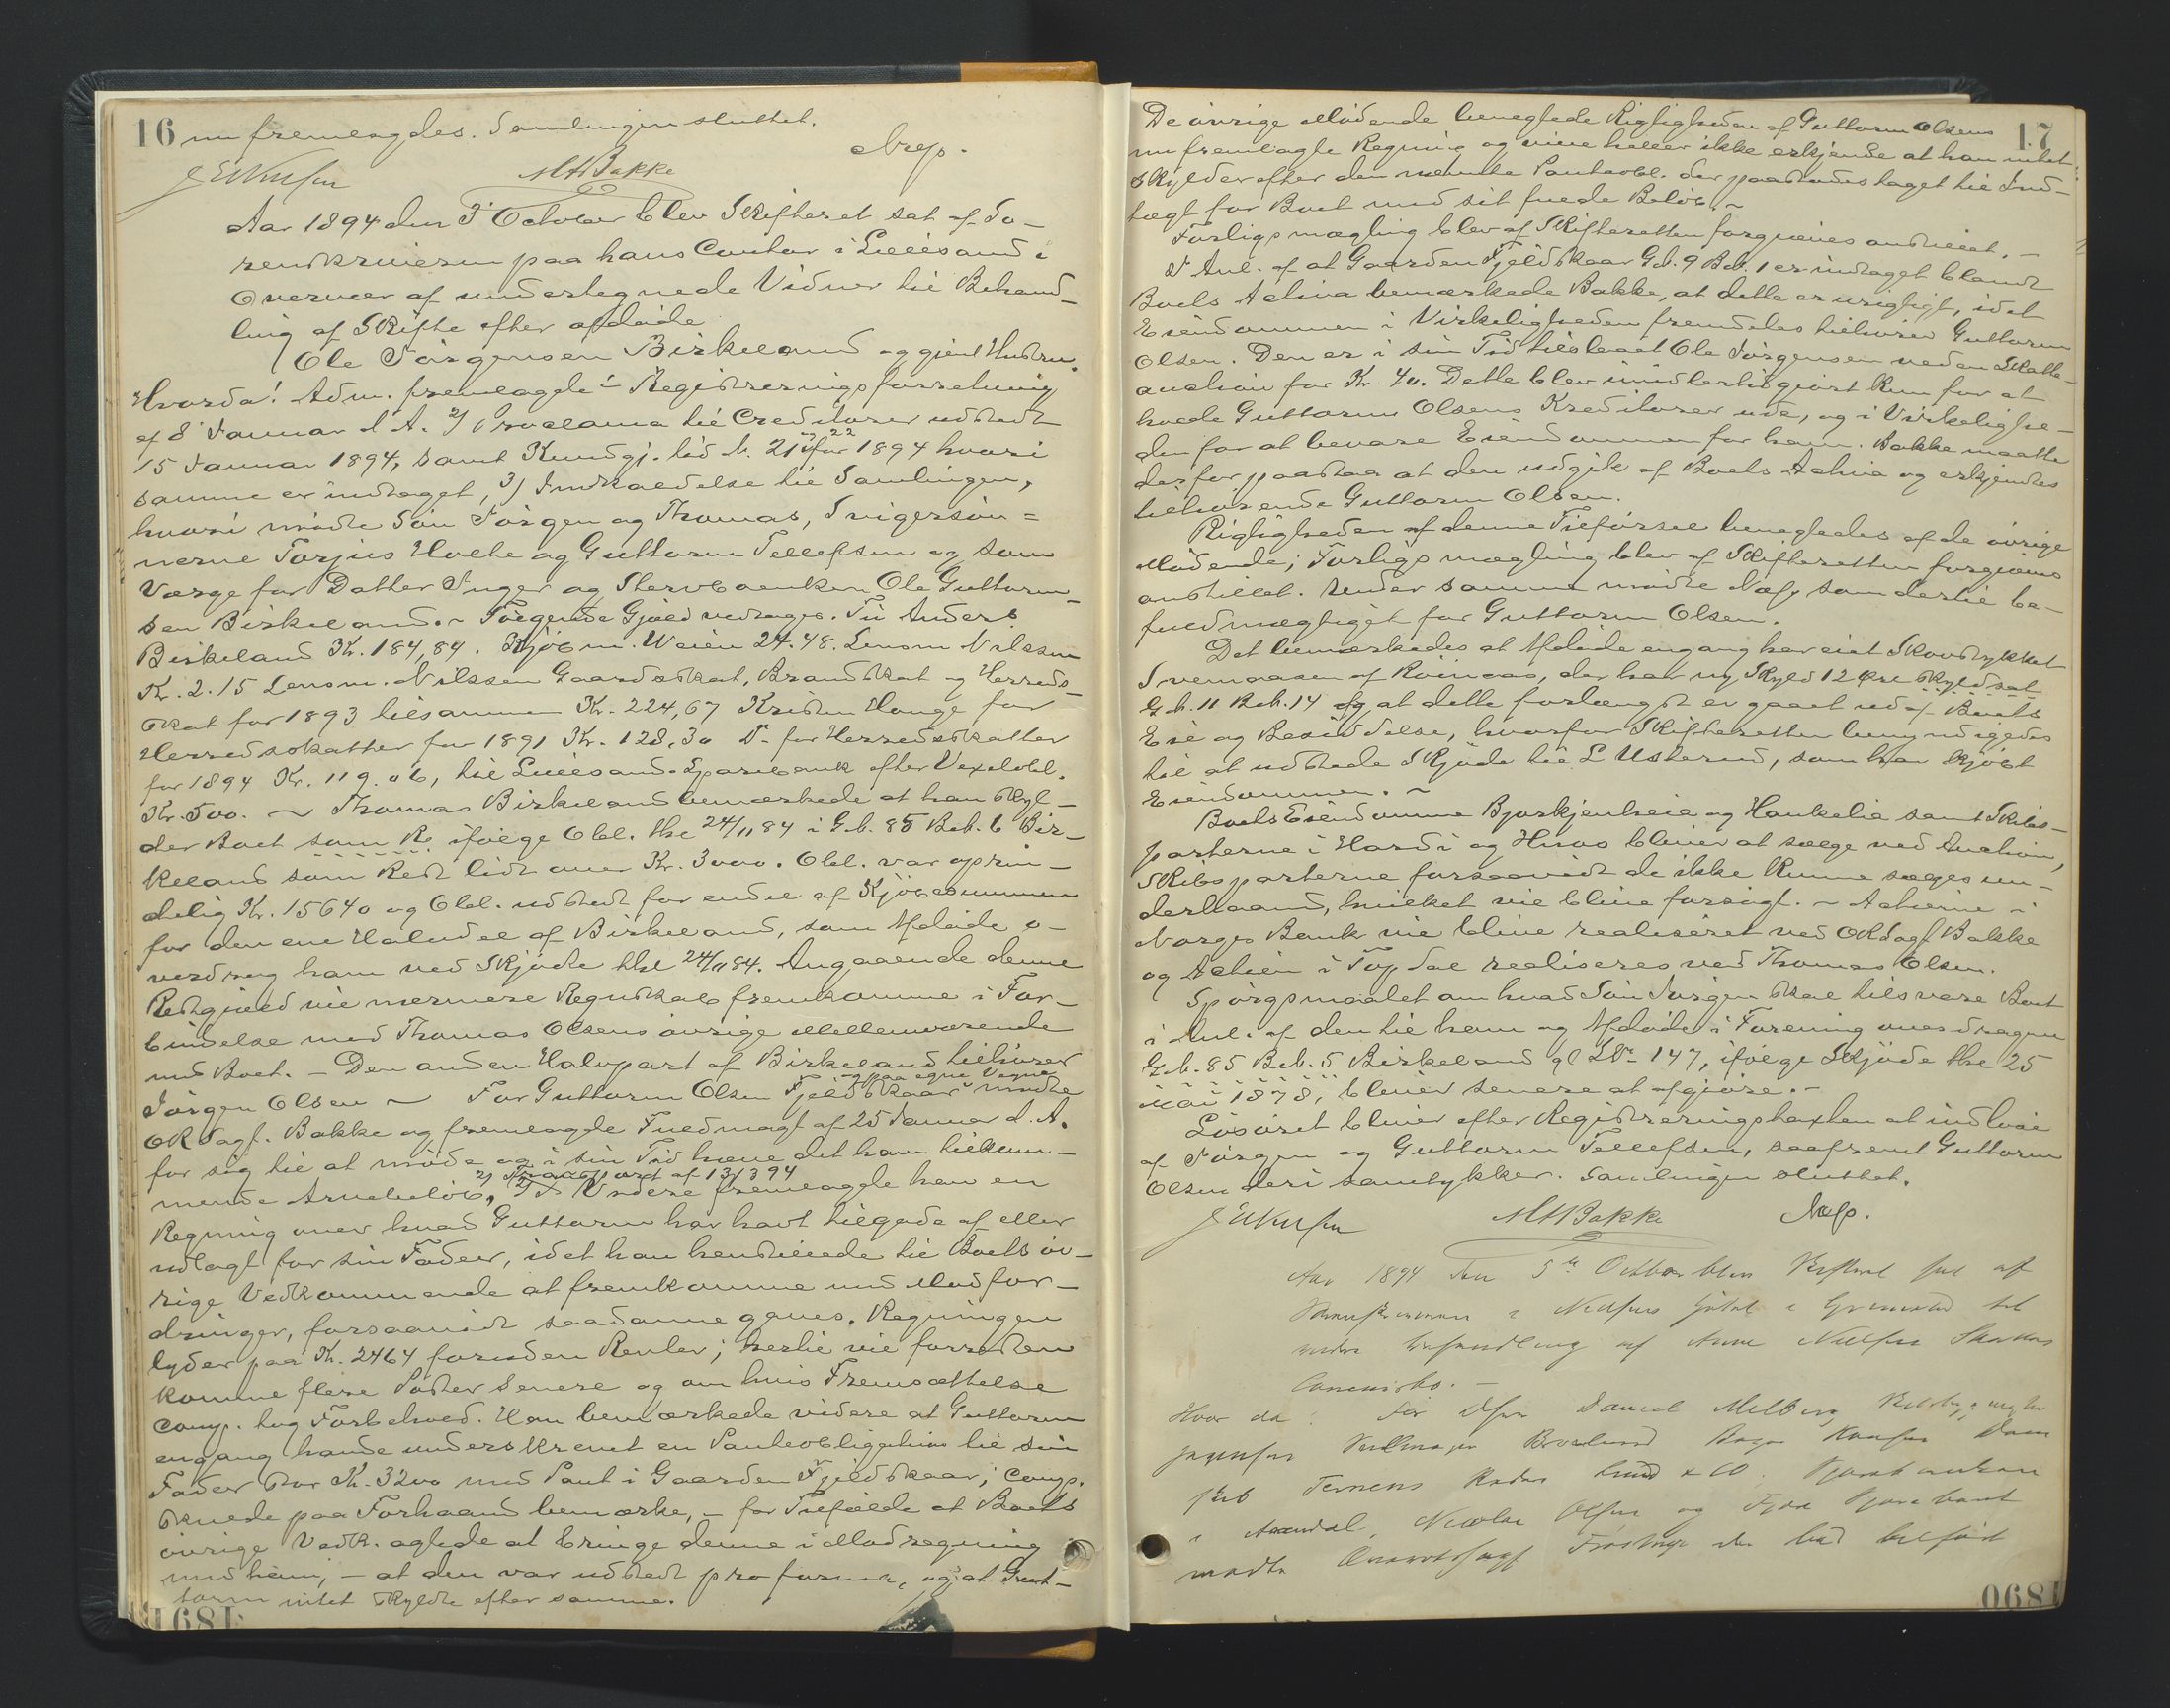 16 nu fremlagdes. Samlingen sluttet.
MABakke
Aar 1894 den 3' October blev Skifteret sat af So-
renskriveren paa hans Contor i Lillesand i
Overvær af undertegnede Vidner til Behand-
ling af Skifte efter afdøde
Ole Jörgensen Birkeland og gjenl Hustru.
Hvorda! Adm. fremlagde 1) Registreringsforretning
af 8' Januar d A. 2) Proclama til Creditorer udstedt
15 Januar 1894, samt Kundgj. tid N. 21 & 22 for 1894 hvori
samme er indtaget, 3) Indkaldelse til Samlingen,
hvori mödte Sön Jörgen og Thomas, Svigersön=
nerne Torjus Holte og Guttorm Tellefsen og som
Værge for Datter Inger og Stervboenken Ole Guttorm-
sen Birkeland. ~ Fölgende Gjæld vedtages. Til Anders
Birkeland Kr. 184,84. Kjöbm. Weien 24.48. Lensm Nilssen
Kr. 2.15 Lensm. Nilssen Gaardsskat, Brandskat og Herreds-
skat for 1893 tilsammen Kr. 224,67 Kristen Hauge for
Herredsskatter for 1891 Kr. 128,30 D- for Herredsskatter
for 1894 Kr. 119.06, til Lillesands Sparebank efter Vexelobl.
Kr. 500. ~ Thomas Birkeland bemærkede at han skyl-
der Boet som R ifölge Obl. thl 24/11 84 i Gb. 85 Bb. 6 Bir-
keland som Rest lidt over Kr. 3000. Obl. var oprin-
delig Kr. 15640 og Obl. udstedt for endel af Kjöbesummen
for den ene Halvdel af Birkeland, som Afdöde o-
verdrog ham ved Skjöde thl 24/11 84. Angaaende denne
Restgjæld vil nærmere Regnskab fremkomme i For-
bindelse med Thomas Olsens övrige Mellemværende
med Boet. - Den anden Halvpart af Birkeland tilhörer
og paa egne Vegne
Jörgen Olsen ~ For Guttorm Olsen Fjeldskaar mödte
OR Sagf. Bakke og fremlagde Fuldmagt af 25 Januar d. A.
for sig til at möde og i sin Tid hæve det ham tilkom-
2) Transport af 13/3 94
mende Arvebelöb, Videre fremlagde han en
Regning over hvad Guttorm har havt tilgode af eller
udlagt for sin Fader, idet han henstillede til Boets öv-
rige Vedkommende at fremkomme med Modfor-
dringer, forsaavidt saadanne gaves. Regningen
lyder paa Kr. 2464 foruden Renter; hertil vil forresten
komme flere Poster senere og om hvis Fremsættelse
Comp. tog Forbehold. Han bemærkede videre at Guttorm
engang havde underskrevet en Panteobligation til sin
Fader stor Kr. 3200 med Pant i Gaarden Fjeldskaar; Comp.
skulde paa Forhaand bemærke, - for Tilfælde at Boets
övrige Vedk. agtede at bringe denne i Modregning
med ham, - at den var udstedt pro forma, og at Gut-
torm intet skyldte efter samme.
1891
17
De övrige Mödende benegtede Rigtigheden af Guttorm Olsens
nu fremlagte Regning og vilde heller ikke erkjende at han intet
skylder efter den nævnte Panteobl. der paastodes taget til Ind-
tægt for Boet med sit fulde Belöb. ~
Forligsmægling blev af Skifteretten forgjæves anstillet. -
I Anl. af at Gaarden Fjeldskaar Gb. 9 Bb. 1 er indtaget blandt
Boets Activa bemærkede Bakke, at dette er urigtigt, idet
Eiendommen i Virkeligheden fremdeles tilhörer Guttorm
Olsen. Den er i sin Tid tilslaaet Ole Jörgensen ved en Skatte-
auction for Kr. 40. Dette blev imidlertid gjort kun for at
holde Guttorm Olsens Kreditorer ude, og i Virkelighe-
den for at bevare Eiendommen for ham. Bakke maatte
derfor paastaa at den udgik af Boets Activa og erkjendtes
tilhörende Guttorm Olsen.
Rigtigheden af denne Tilförsel benegtedes af de övrige
Mödende; Forligsmægling blev af Skifteretten forgjæves
anstillet. Under samme mödte Næp som dertil be-
fuldmægtiget for Guttorm Olsen.
Det bemærkedes at Afdöde engang har eiet Skovstykket
Svenaasen af Röinaas, der har ny Skyld 12 Øre skyldsat
Gb. 11 Bb. 14 og at dette forlængst er gaaet ud af Boets
Eie og Besiddelse, hvorfor Skifteretten bemyndigedes
til at udstede Skjöde til L Usterud, som har kjöbt
Eiendommen. ~
Boets Eiendomme Bjorkjenheia og Hankelia samt Skibs-
parterne i Hardi og Huvo bliver at sælge ved Auction,
Skibsparterne forsaavidt de ikke kunne sælges un-
derhaand, hvilket vil blive forsögt. ~ Actierne i
Norges Bank vil blive realiseret ved OR Sagf Bakke
og Actien i Topdal realiseres ved Thomas Olsen.
Spörgsmaalet om hvad Sön Jörgen skal tilsvare Boet
i Anl. af den til ham og Afdöde i Forening overdragne
Gb. 85 Bb. 5 Birkeland gl LNr 147, ifölge Skjöde thl 25
Mai 1878, bliver senere at afgjöre. -
Lösöret bliver efter Registreringstaxten at indlöse
af Jörgen og Guttorm Tellefsen, saafremt Guttorm
Olsen deri samtykker. Samlingen sluttet.
MABakke Næp.
Aar 1894 den 5te October blev Skifteret sat af
i Grimstad til
videre Behandling af
Hvor da:
Lund & Co
i Arendal, Nicolai Olsen og
mödte
0681